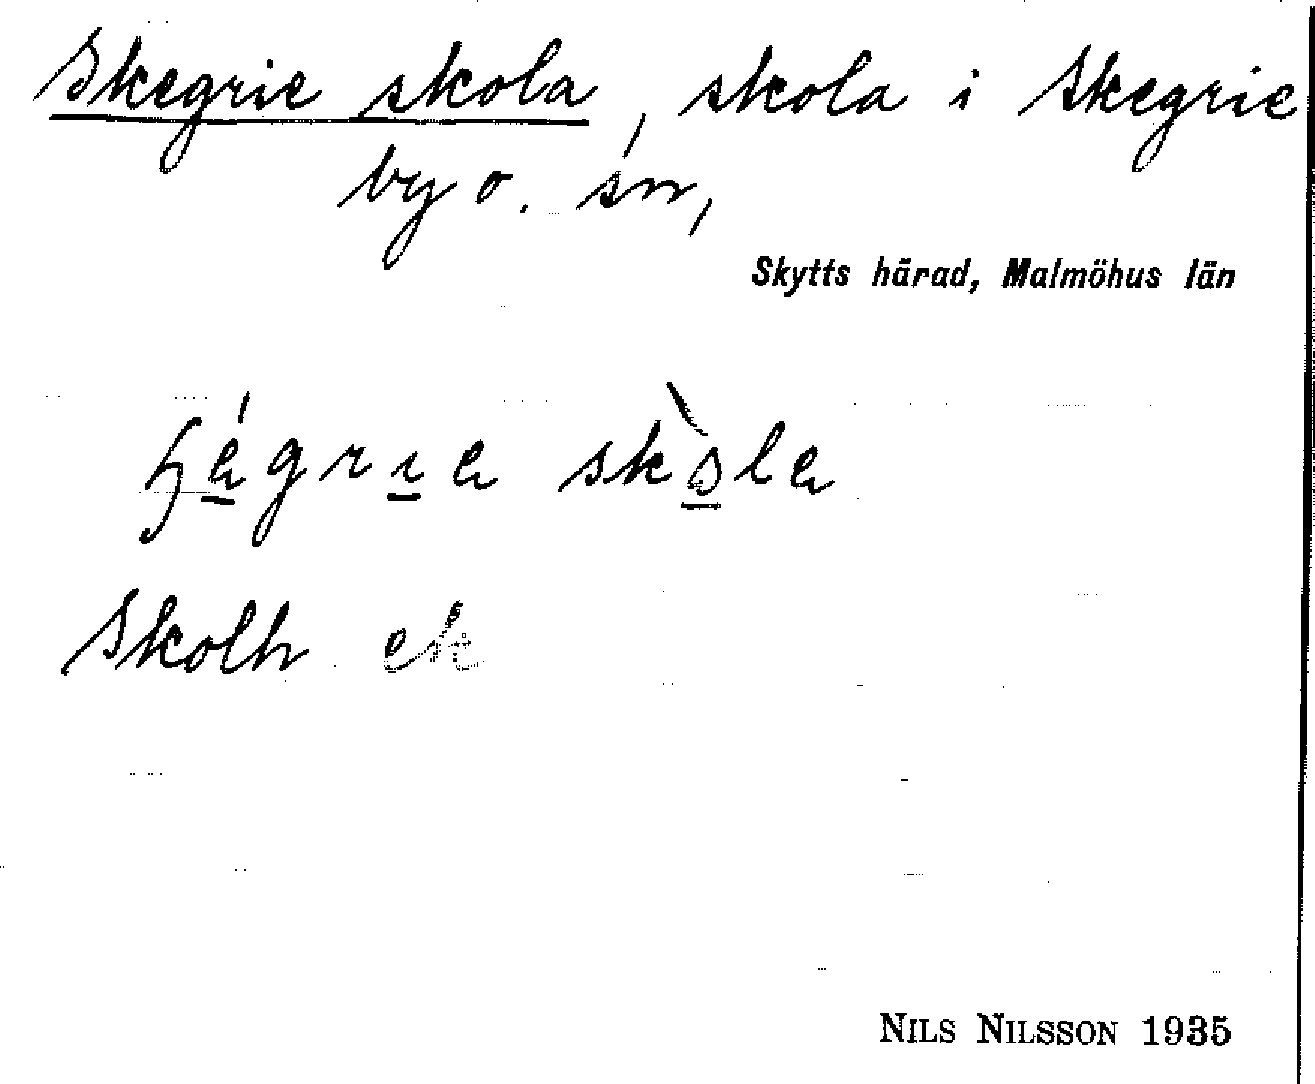 Skegrie skola, skola i Skegrie
by o. sn,
Skytts härad, Malmöhus län
Skolh ek
NILS NILSSON 1935